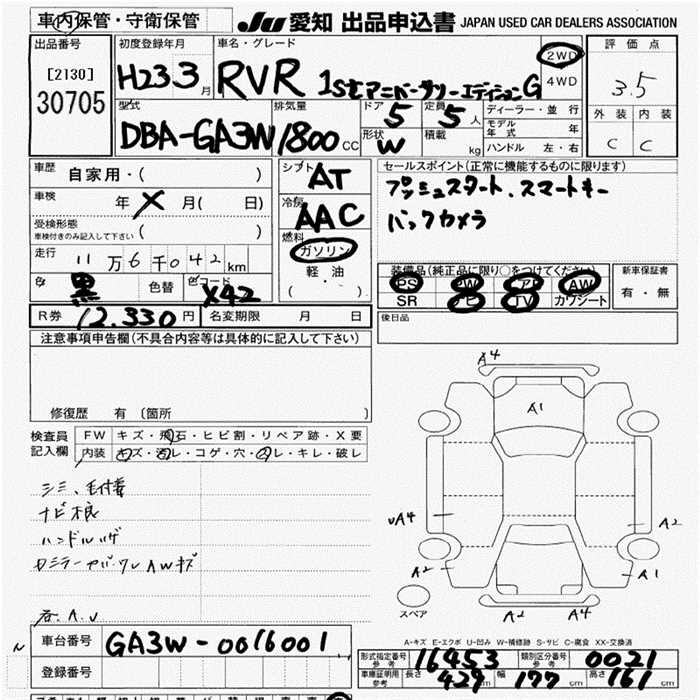 車内保管・守衛保管
JU 愛知 出品申込書 JAPAN USED CAR DEALERS ASSOCIATION
出品番号
[2130]
30705
初度登録年月
H23 3 月
車名・グレード
RVR 1stアニバーサリーエディションG
2WD
4WD
評価点
3.5
外装 内装
C C
型式
DBA-GA3W
排気量
1800 CC
ドア 5
形状 W
定員 5 人
積載 kg
ディーラー・並行
モデル年式 年
ハンドル 左・右
車歴 自家用・( )
車検 年 X 月( 日)
受検形態
車検付きのみ記入して下さい ( )
走行 11 万 6 千 0 4 2 km
色 黒 色替 色コード X42
シフト AT
冷房 AAC
燃料
ガソリン
軽油
( ・ )
セールスポイント(正常に機能するものに限ります)
プッシュスタート、スマートキー
バックカメラ
装備品(純正品に限り○をつけてください)
PS PW エアB AW
SR ナビ TV カワシート
新車保証書
有・無
R券 12,330 円 名変期限 月 日
後日品
注意事項申告欄(不具合内容等は具体的に記入して下さい)
修復歴 有 (箇所 )
検査員記入欄
FW キズ・飛石・ヒビ割・リペア跡・X要
内装 キズ・汚レ・コゲ・穴・スレ・キレ・破レ
シミ、毛付着
ナビ根
ハンドルハゲ
A4
A1
A4
A2
A2
A1
スペア
A2 A4
A-キズ E-エクボ U-凹み W-補修跡 S-サビ C-腐食 XX-交換済
車台番号 GA3W-0016001
登録番号
形式指定番号 参考 16453 類別区分番号 参考 0021
車庫証明用 参考 長さ 429 cm 幅 177 cm 高さ 161 cm